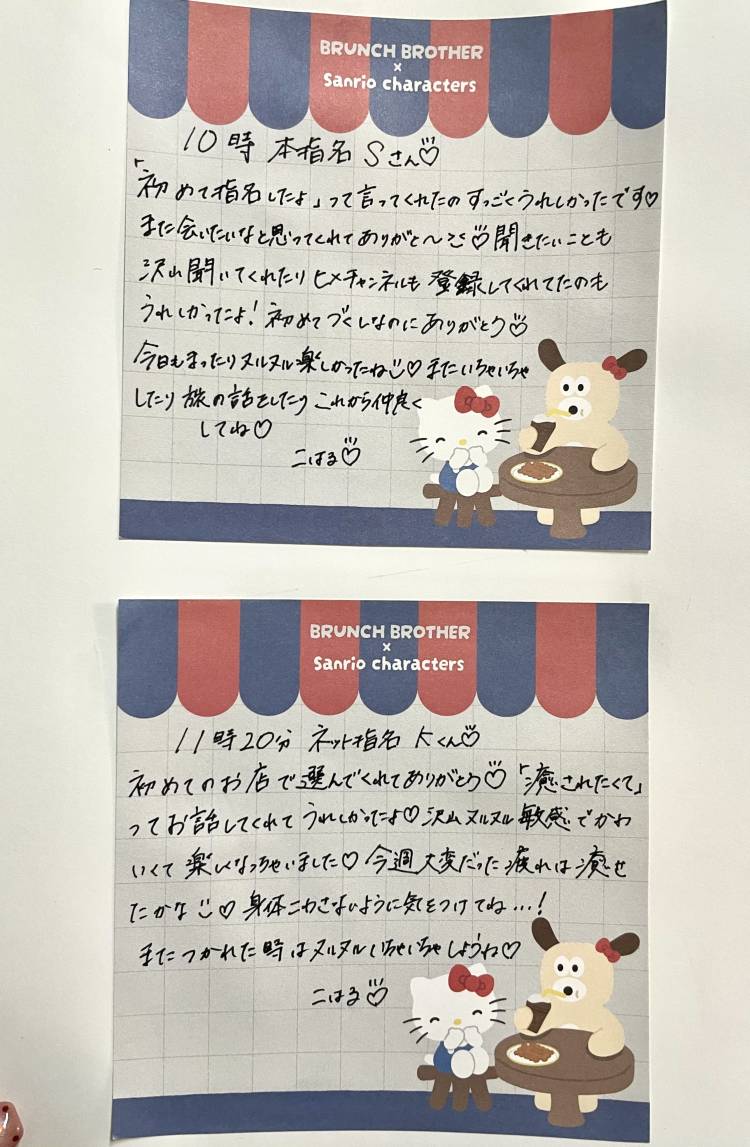 BRUNCH BROTHER
×
Sanrio characters
10時 本指名 Sさん♡
「初めて指名したよ」って言ってくれたの すっごくうれしかったです♡
また会いたいなと思ってくれてありがと〜♡聞きたいことも
沢山聞いてくれたり ヒメチャンネルも 登録してくれてたのも
うれしかったよ!初めてづくしなのに ありがとう♡
今日もまったりヌルヌル楽しかったね♡ またいちゃいちゃ
したり 旅の話をしたり これから仲良く
してね♡
こはる♡
BRUNCH BROTHER
×
Sanrio characters
11時20分 ネット指名 Kくん♡
初めてのお店で選んでくれてありがとう♡「癒されたくて」
ってお話してくれて うれしかったよ♡沢山ヌルヌル敏感でかわ
いくて 楽しくなっちゃいました♡ 今週大変だった疲れは癒せ
たかな♡ 身体こわさないように気をつけてね…!
またつかれた時はヌルヌルいちゃいちゃしようね♡
こはる♡